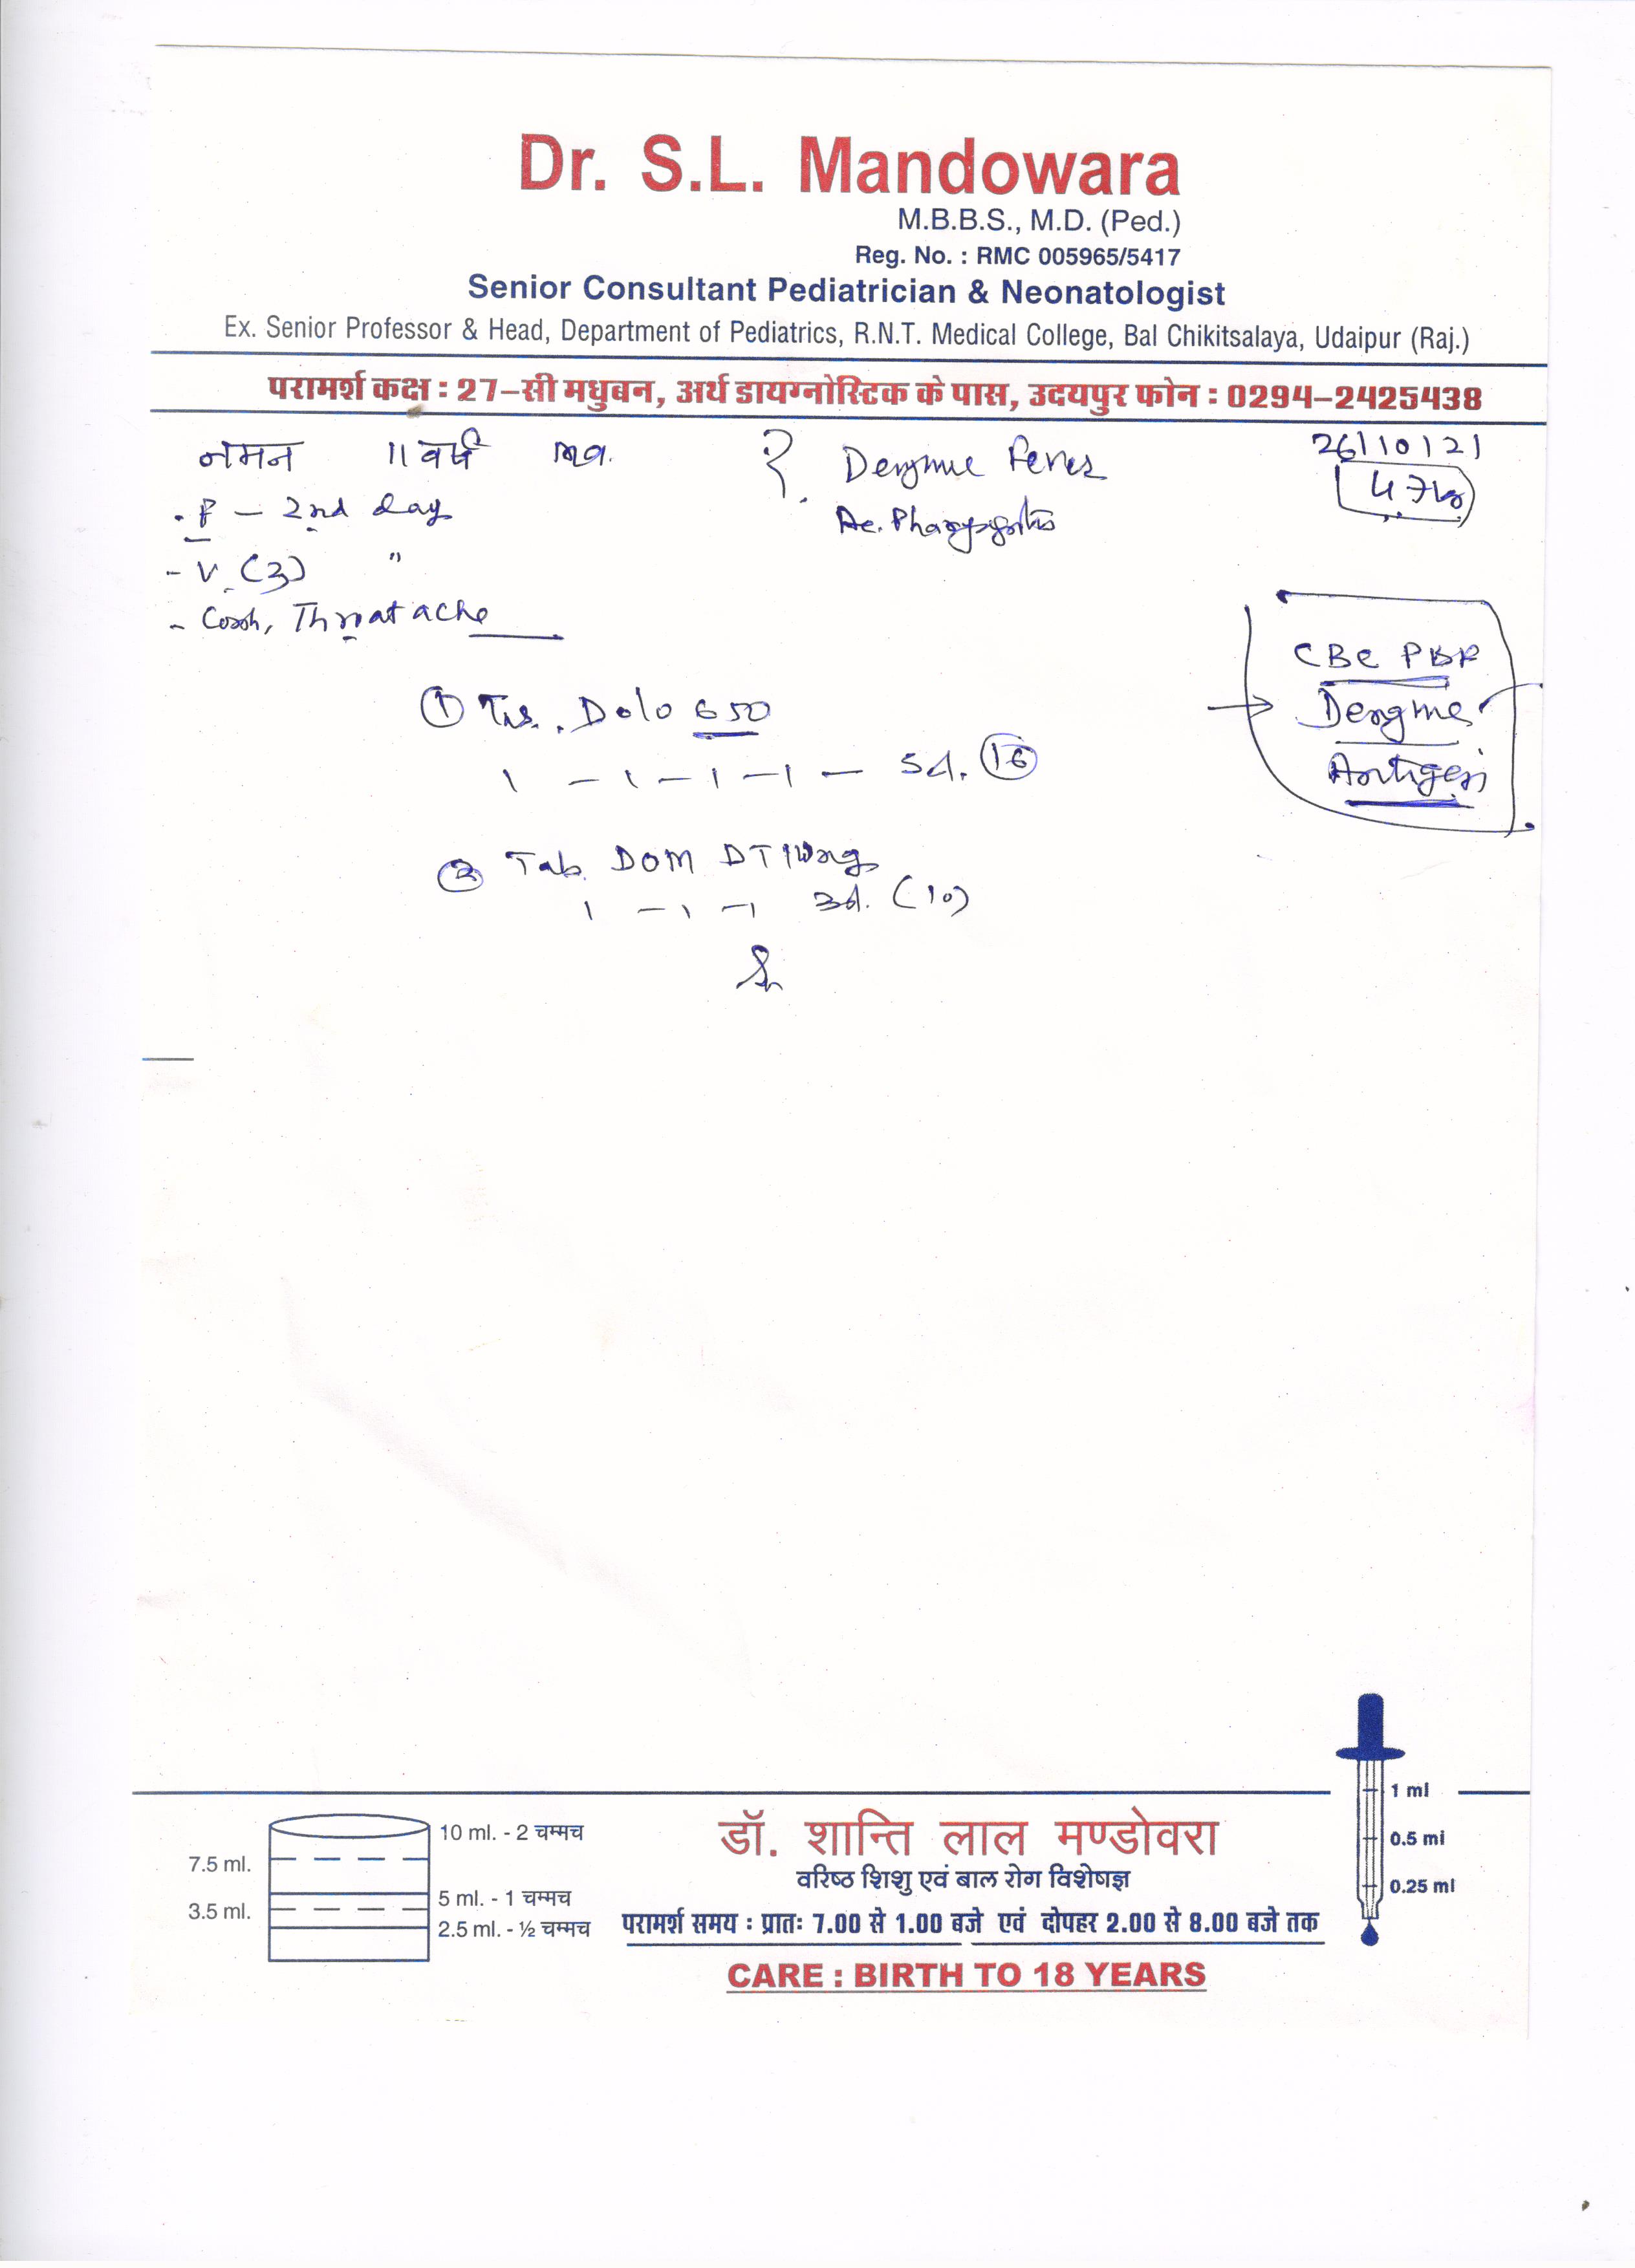 Dr. S.L. Mandowara
M.B.B.S., M.D. (Ped.)
Reg. No. : RMC 005965/5417
Senior Consultant Pediatrician & Neonatologist
Ex. Senior Professor & Head, Department of Pediatrics, R.N.T. Medical College, Bal Chikitsalaya, Udaipur (Raj.)
परामर्श कक्ष : 27-सी मधुबन, अर्थ डायग्नोस्टिक के पास, उदयपुर फोन : 0294-2425438
नमन 11 वर्ष ? Dengue Fever 26/10/21
47kg
Ac. Pharyngitis
- F - 2nd day
- V (3) "
- Cough, Throatache
CBC PBF
Dengue
Antigen
① Tab. Dolo 650
1 - 1 - 1 - 1 - 5d. (16)
② Tab. DOM DT 10mg
1 - 1 - 1 3d. (10)
1 ml
0.5 ml
0.25 ml
10 ml. - 2 चम्मच
7.5 ml.
5 ml. - 1 चम्मच
3.5 ml.
2.5 ml. - ½ चम्मच
डॉ. शान्ति लाल मण्डोवरा
वरिष्ठ शिशु एवं बाल रोग विशेषज्ञ
परामर्श समय : प्रातः 7.00 से 1.00 बजे एवं दोपहर 2.00 से 8.00 बजे तक
CARE : BIRTH TO 18 YEARS